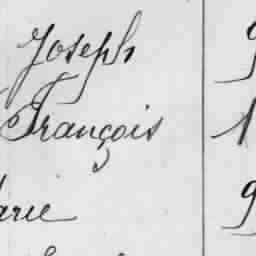 Joseph
François
arie